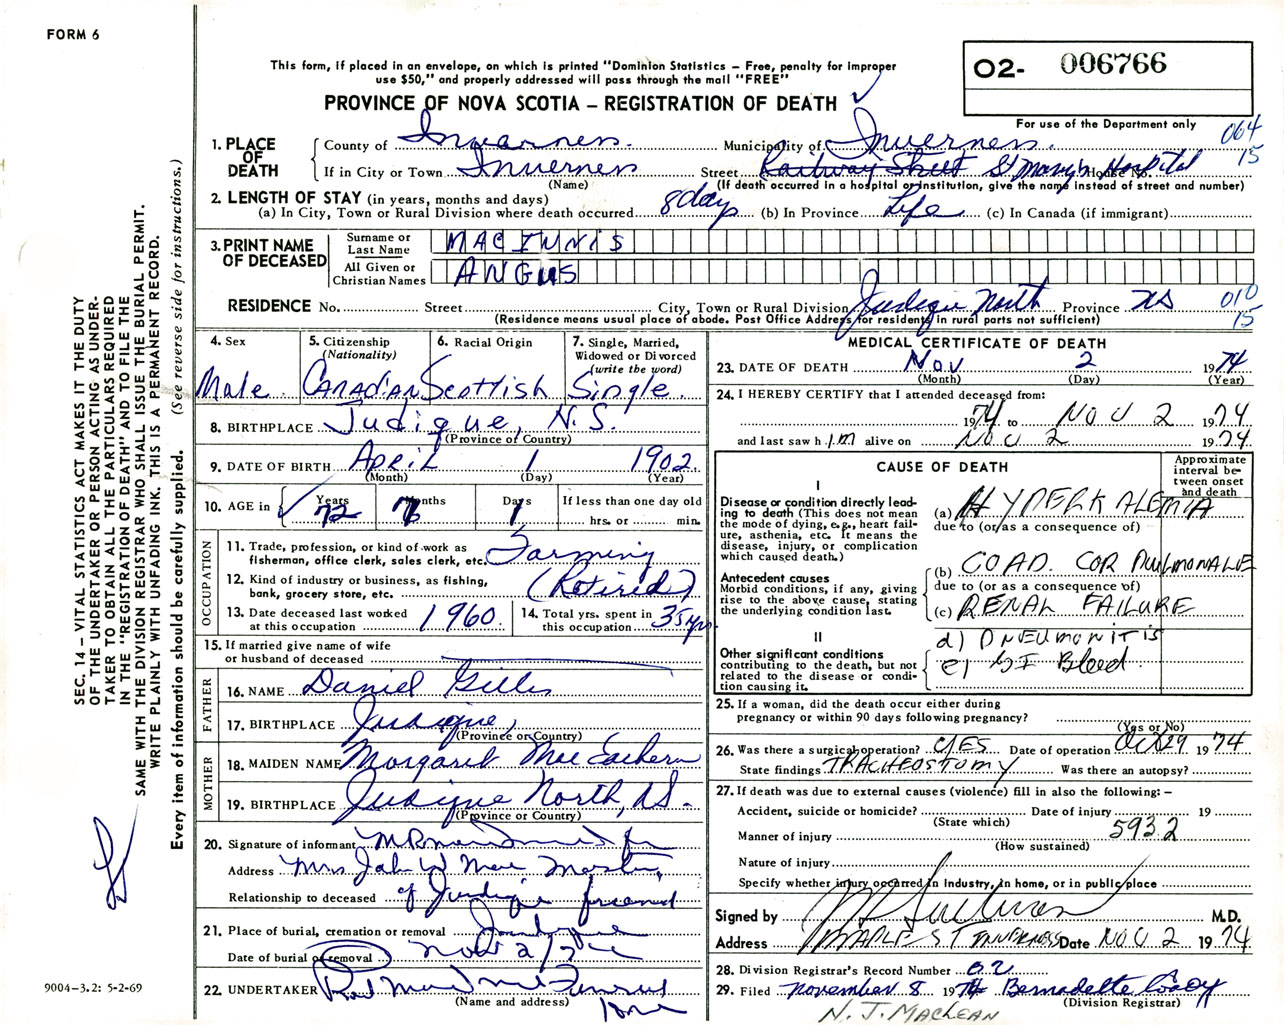 FORM 6
This form, if placed in an envelope, on which is printed "Dominion Statistics – Free, penalty for improper
use $50," and properly addressed will pass through the mail "FREE"
PROVINCE OF NOVA SCOTIA – REGISTRATION OF DEATH
O2- 006766
For use of the Department only
064
15
1. PLACE OF DEATH
County of Inverness. Municipality of Inverness.
If in City or Town Inverness Street Railway Street St Mary's Hospital House No.
(Name) (If death occurred in a hospital or institution, give the name instead of street and number)
2. LENGTH OF STAY (in years, months and days)
(a) In City, Town or Rural Division where death occurred 8 days (b) In Province Life (c) In Canada (if immigrant)
3. PRINT NAME OF DECEASED
Surname or Last Name MACINNIS
All Given or Christian Names ANGUS
RESIDENCE No. Street City, Town or Rural Division Judique North Province NS
010
15
(Residence means usual place of abode. Post Office Address for residents in rural parts not sufficient)
4. Sex Male
5. Citizenship (Nationality) CANADIAN
6. Racial Origin Scottish
7. Single, Married, Widowed or Divorced (write the word) Single.
8. BIRTHPLACE Judique, N.S.
(Province or Country)
9. DATE OF BIRTH April 1 1902
(Month) (Day) (Year)
10. AGE in Years 72 Months 7 Days 1
If less than one day old
hrs. or min.
OCCUPATION
11. Trade, profession, or kind of work as
fisherman, office clerk, sales clerk, etc. Farming
12. Kind of industry or business, as fishing,
bank, grocery store, etc. (Retired)
13. Date deceased last worked
at this occupation 1960
14. Total yrs. spent in
this occupation 35 yrs.
15. If married give name of wife
or husband of deceased
FATHER
16. NAME Daniel Gillis
17. BIRTHPLACE Judique,
(Province or Country)
MOTHER
18. MAIDEN NAME Margaret MacEachern
19. BIRTHPLACE Judique North, NS.
(Province or Country)
20. Signature of informant
Address Mrs John W Mac Master,
Relationship to deceased of Judique friend
21. Place of burial, cremation or removal Judique
Date of burial or removal Nov 2/74
22. UNDERTAKER Funeral Home
(Name and address)
MEDICAL CERTIFICATE OF DEATH
23. DATE OF DEATH Nov 2 1974
(Month) (Day) (Year)
24. I HEREBY CERTIFY that I attended deceased from:
1974 to NOV 2 1974
and last saw him alive on NOV 2 1974
CAUSE OF DEATH
Approximate interval between onset and death
I
Disease or condition directly leading to death (This does not mean the mode of dying, e.g., heart failure, asthenia, etc. It means the disease, injury, or complication which caused death.)
(a) HYPERKALEMIA
due to (or/as a consequence of)
Antecedent causes
Morbid conditions, if any, giving rise to the above cause, stating the underlying condition last.
(b) COAD. COR PULMONALE
due to (or as a consequence of)
(c) RENAL FAILURE
II
Other significant conditions
contributing to the death, but not related to the disease or condition causing it.
d) PNEUMONITIS
e) GI Bleed
25. If a woman, did the death occur either during
pregnancy or within 90 days following pregnancy?
(Yes or No)
26. Was there a surgical operation? YES Date of operation Oct 29 1974
State findings TRACHEOSTOMY Was there an autopsy?
27. If death was due to external causes (violence) fill in also the following: –
Accident, suicide or homicide? Date of injury 19
(State which)
593.2
Manner of injury
(How sustained)
Nature of injury
Specify whether injury occurred in Industry, in home, or in public place
Signed by M.D.
Address MAPLE ST INVERNESS Date NOV 2 1974
28. Division Registrar's Record Number 62
29. Filed November 8 1974 Bernadette
(Division Registrar)
N. J. MacLean
SEC. 14 – VITAL STATISTICS ACT MAKES IT THE DUTY
OF THE UNDERTAKER OR PERSON ACTING AS UNDER-
TAKER TO OBTAIN ALL THE PARTICULARS REQUIRED
IN THE "REGISTRATION OF DEATH" AND TO FILE THE
SAME WITH THE DIVISION REGISTRAR WHO SHALL ISSUE THE BURIAL PERMIT.
WRITE PLAINLY WITH UNFADING INK. THIS IS A PERMANENT RECORD.
Every item of information should be carefully supplied. (See reverse side for instructions.)
9004-3.2: 5-2-69